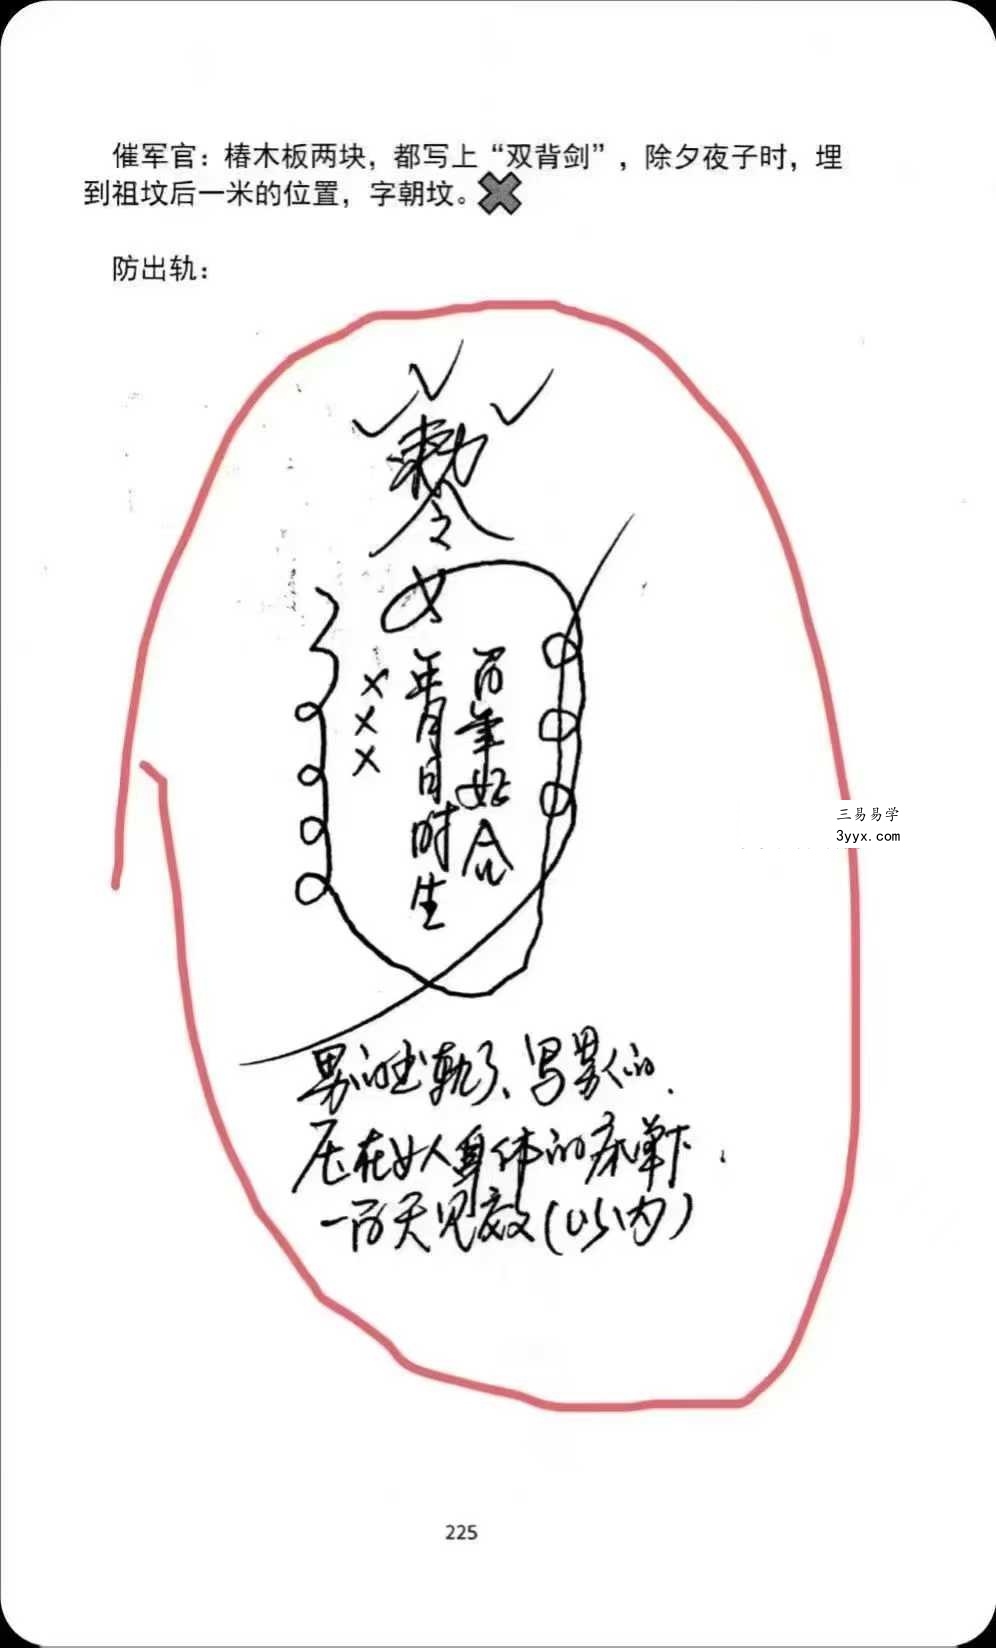 催军官：椿木板两块，都写上“双背剑”，除夕夜子时，埋
到祖坟后一米的位置，字朝坟。
防出轨：
敕
令
女
×××
年月日时生
百年好合
三易易学
3yyx.com
男的出轨了、写男人的.
压在女人身体的床单下.
一百天见效(以内)
225